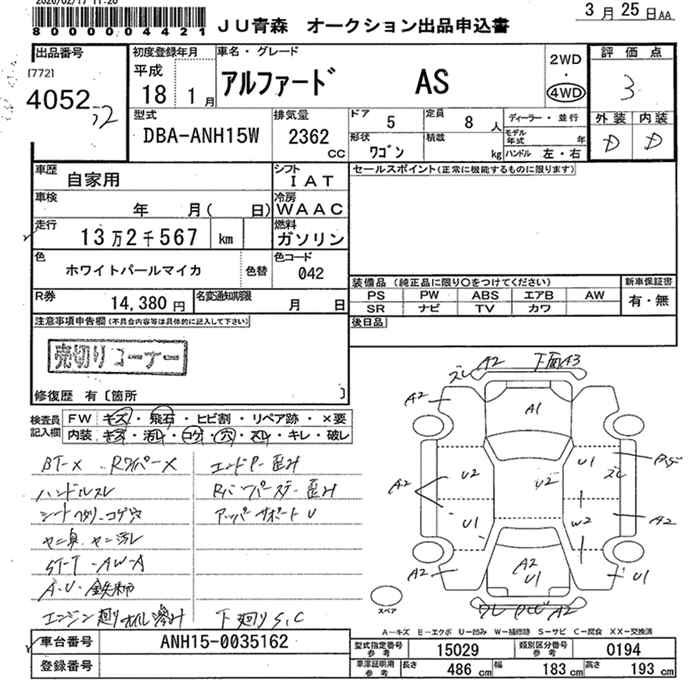 800000004421 JU青森 オークション出品申込書 3月25日AA
出品番号 初度登録年月 車名・グレード 2WD・4WD 評価点
[772] 平成 アルファード AS 3
4052 18 1月
型式 排気量 ドア 5 定員 8人 ディーラー・並行 外装 内装
DBA-ANH15W 2362CC 形状 ワゴン 積載 kg モデル年式 年 D D
ハンドル 左・右
車歴 自家用 シフト IAT セールスポイント(正常に機能するものに限ります)
車検 年 月( 日) 冷房 WAAC
走行 13万2千567 km 燃料 ガソリン
色 ホワイトパールマイカ 色替 色コード 042
装備品(純正品に限り○をつけてください) 新車保証書
R券 14,380円 名変通知期限 月 日 PS PW ABS エアB AW 有・無
SR ナビ TV カワ
注意事項申告欄(不具合内容等は具体的に記入して下さい) 後日品
売切りコーナー
修復歴 有〔箇所 〕
検査員記入欄 FW キズ・飛石・ヒビ割・リペア跡・×要
内装 キズ・汚レ・コゲ・穴・スレ・キレ・破レ
BT-× Rワイパー× エンドP-歪ミ
ハンドルスレ Rインパースデー歪ミ
シートヘタリ・コゲ穴 アッパーサポートU
ヤニ臭 ヤニ汚レ
ST-T-AW-A
A・U・鉄粉
エンジン廻りオイル滲ミ 下廻りS,C
ズレ A2 下面A3
A2 A2
A1
U2 U2 U1 ズレ
A2
U1 W2 A2
A2 A2 U1 U1
A2
スペア
A-キズ E-エクボ U-凹み W-補修跡 S-サビ C-腐食 XX-交換済
車台番号 ANH15-0035162 型式指定番号 参考 15029 類別区分番号 参考 0194
登録番号 車庫証明用 参考 長さ 486cm 幅 183cm 高さ 193cm